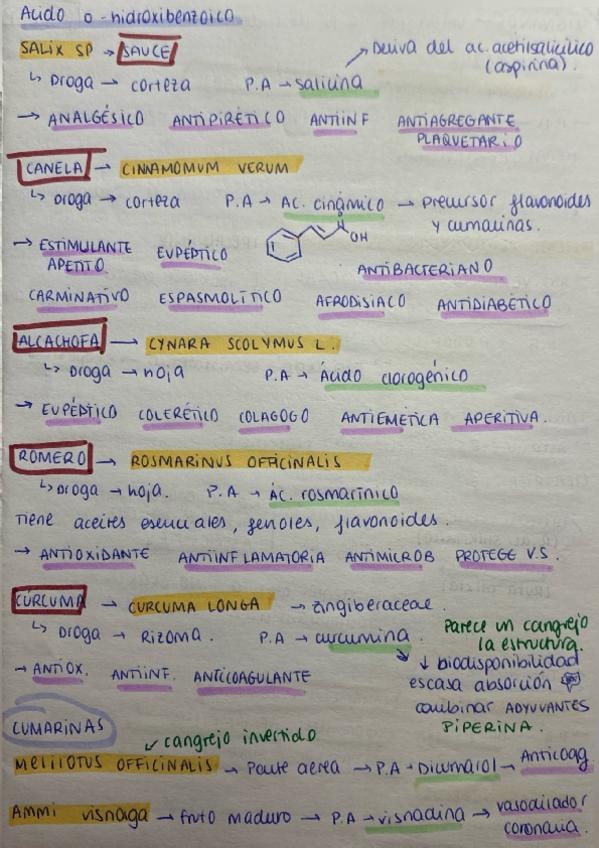 Acido o-hidroxibenzoico
SALIX SP → SAUCE → Deriva del ac. acetilsalicílico
(aspirina).
↳ Droga → corteza P.A → salicina
→ ANALGÉSICO ANTIPIRÉTICO ANTIINF ANTIAGREGANTE
PLAQUETARIO
CANELA → CINNAMOMUM VERUM
↳ Droga → corteza P.A → AC. cinámico → Precursor flavonoides
y cumarinas.
OH
→ ESTIMULANTE EUPÉPTICO
APETITO ANTIBACTERIANO
CARMINATIVO ESPASMOLÍTICO AFRODISIACO ANTIDIABÉTICO
ALCACHOFA → CYNARA SCOLYMUS L.
↳ Droga → hoja P.A → Ácido clorogénico
→ EUPÉPTICO COLERÉTICO COLAGOGO ANTIEMÉTICA APERITIVA.
ROMERO → ROSMARINUS OFFICINALIS
↳ Droga → hoja. P.A → ÁC. rosmarínico
Tiene aceites esenciales, fenoles, flavonoides.
→ ANTIOXIDANTE ANTIINFLAMATORIA ANTIMICROB PROTEGE V.S.
CÚRCUMA → CURCUMA LONGA → zingiberaceae.
↳ Droga → Rizoma. P.A → curcumina.
Parece un cangrejo
la estructura.
↓ biodisponibilidad
→ ANTIOX. ANTIINF. ANTICOAGULANTE
escasa absorción
combinar ADYUVANTES
PIPERINA.
CUMARINAS
↙ cangrejo invertido
MELILOTUS OFFICINALIS → Parte aerea → P.A → Dicumarol → Anticoag
AMMI visnaga → fruto maduro → P.A → visnadina → vasodilatador
coronaria.